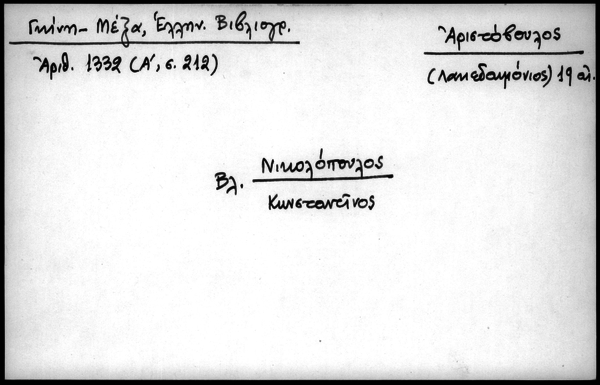 Γκίνη - Μέξα, Ἑλλην. Βιβλιογρ.
Ἀριθ. 1332 (Α', σ. 212)
Ἀριστόβουλος
(Λακεδαιμόνιος) 19 αἰ.
Βλ. Νικολόπουλος
Κωνσταντῖνος